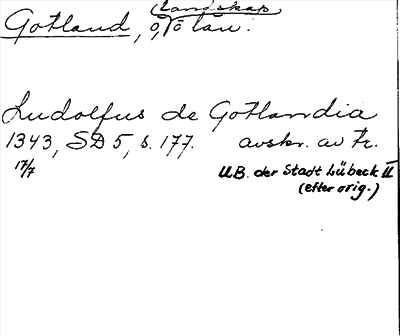 (Landskap)
Gotland, o, Ö län.
Ludolfus de Gotlandia
1343, SD 5, s. 177. avskr. av tr.
17/7 UB. der Stadt Lübeck II
(efter orig.)